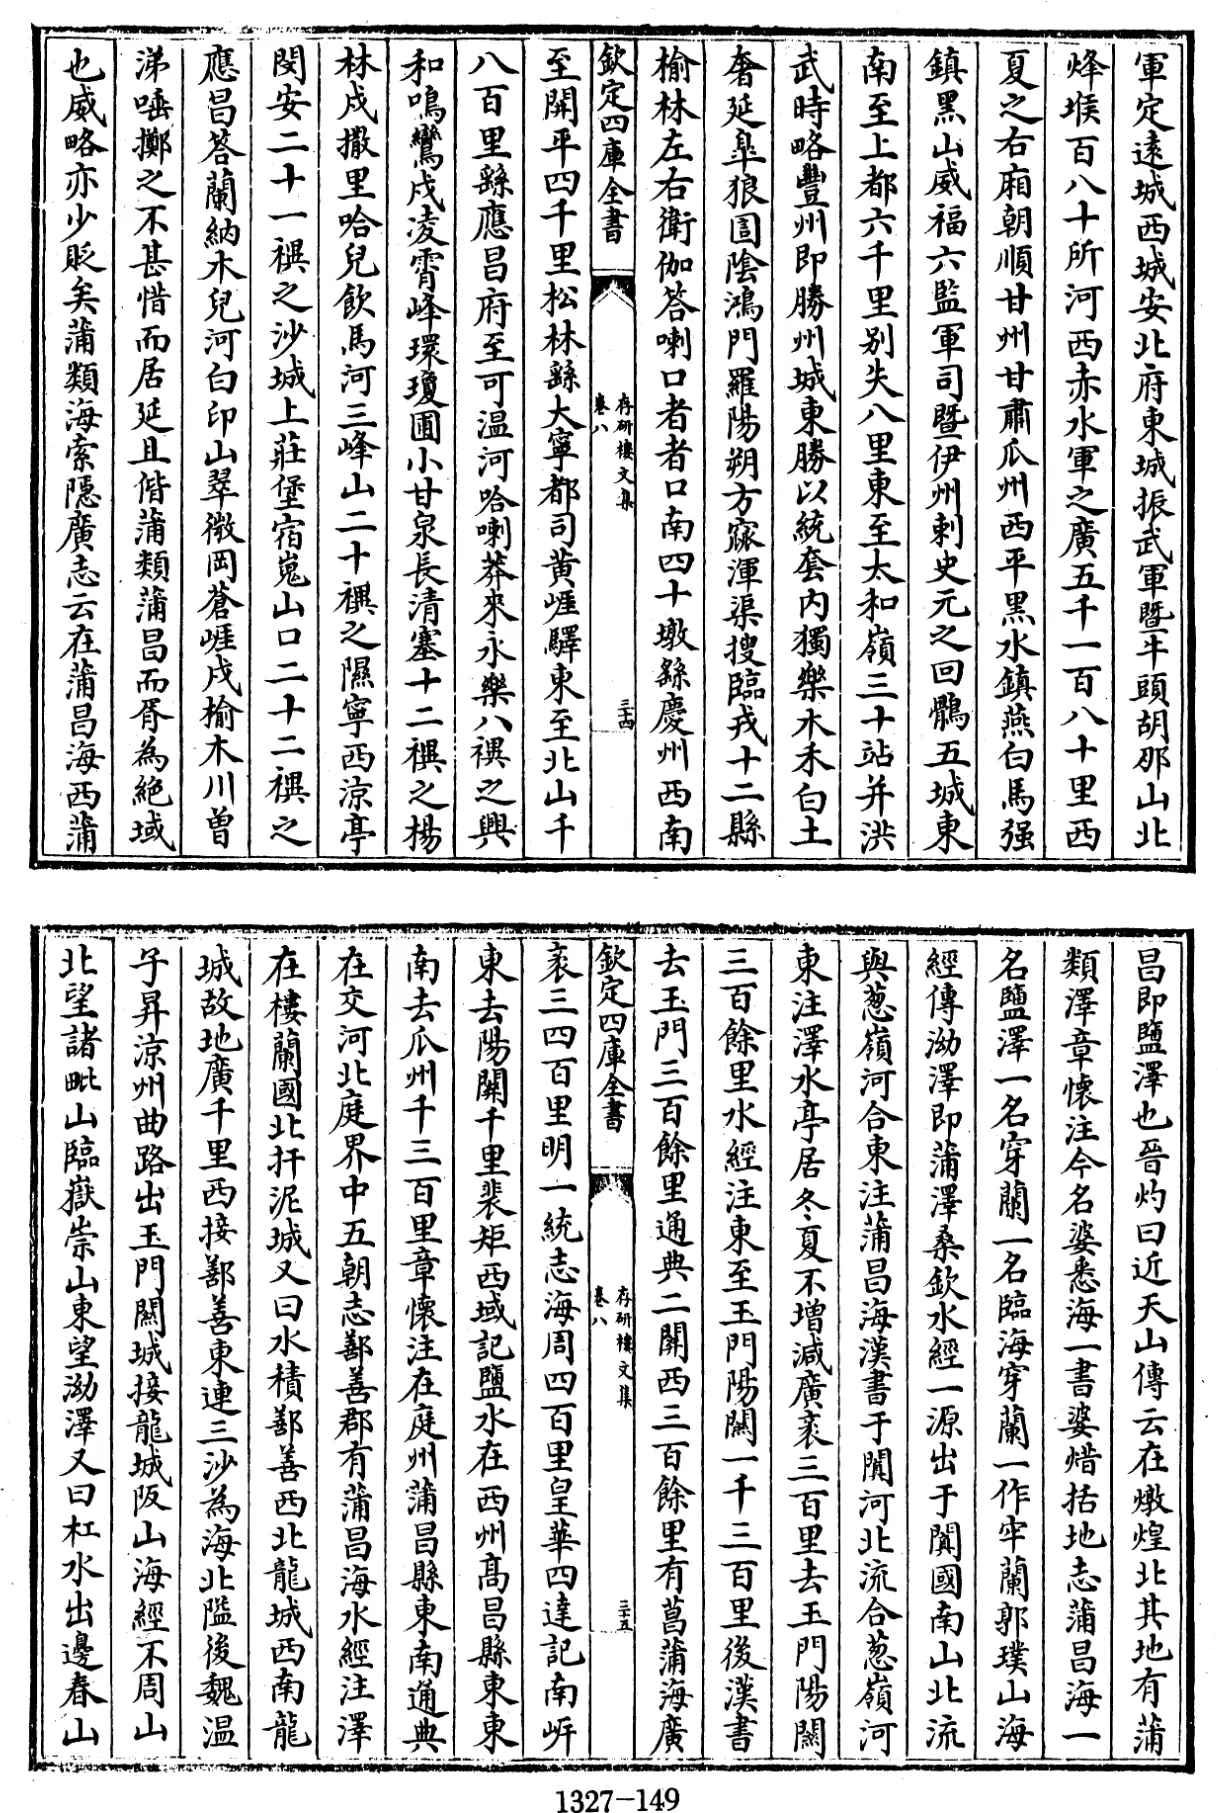 軍定遠城西城安北府東城振武軍暨牛頭胡那山北
烽堠百八十所河西赤水軍之廣五千一百八十里西
夏之右廂朝順甘州甘肅瓜州西平黑水鎮燕白馬强
鎮黑山威福六監軍司暨伊州刺史元之回鶻五城東
南至上都六千里别失八里東至太和嶺三十站并洪
武時略豐州即勝州城東勝以統套内獨樂木禾白土
奢延臯狼圁陰鴻門羅陽朔方窳渾渠搜臨戎十二縣
榆林左右衛伽答喇口者者口南四十墩繇慶州西南
欽定四庫全書
存研樓文集
卷八
三十四
至開平四千里松林繇大寧都司黄崕驛東至北山千
八百里繇應昌府至可温河哈喇莽來永樂八禩之興
和鳴鸞戍凌霄峰環瓊圃小甘泉長清塞十二禩之楊
林戍撒里哈兒飲馬河三峰山二十禩之隰寧西涼亭
閔安二十一禩之沙城上莊堡宿嵬山口二十二禩之
應昌答蘭納木兒河白印山翠微岡蒼崕戍榆木川曽
涕唾擲之不甚惜而居延且偕蒲類蒲昌而胥為絶域
也威略亦少貶矣蒲類海索隱廣志云在蒲昌海西蒲
昌即鹽澤也晉灼曰近天山傳云在燉煌北其地有蒲
類澤章懷注今名婆悉海一書婆㤢括地志蒲昌海一
名鹽澤一名穿蘭一名臨海穿蘭一作牢蘭郭璞山海
經傳泑澤即蒲澤桑欽水經一源出于闐國南山北流
與葱嶺河合東注蒲昌海漢書于闐河北流合葱嶺河
東注澤水亭居冬夏不增減廣袤三百里去玉門陽闗
三百餘里水經注東至玉門陽闗一千三百里後漢書
去玉門三百餘里通典二關西三百餘里有菖蒲海廣
欽定四庫全書
存研樓文集
卷八
三十五
袤三四百里明一統志海周四百里皇華四達記南岍
東去陽關千里裴矩西域記鹽水在西州髙昌縣東東
南去瓜州千三百里章懷注在庭州蒲昌縣東南通典
在交河北庭界中五朝志鄯善郡有蒲昌海水經注澤
在樓蘭國北扞泥城又曰水積鄯善西北龍城西南龍
城故地廣千里西接鄯善東連三沙為海北隘後魏温
子昇涼州曲路出玉門闗城接龍城阪山海經不周山
北望諸毗山臨嶽崇山東望泑澤又曰杠水出邊春山
1327—149